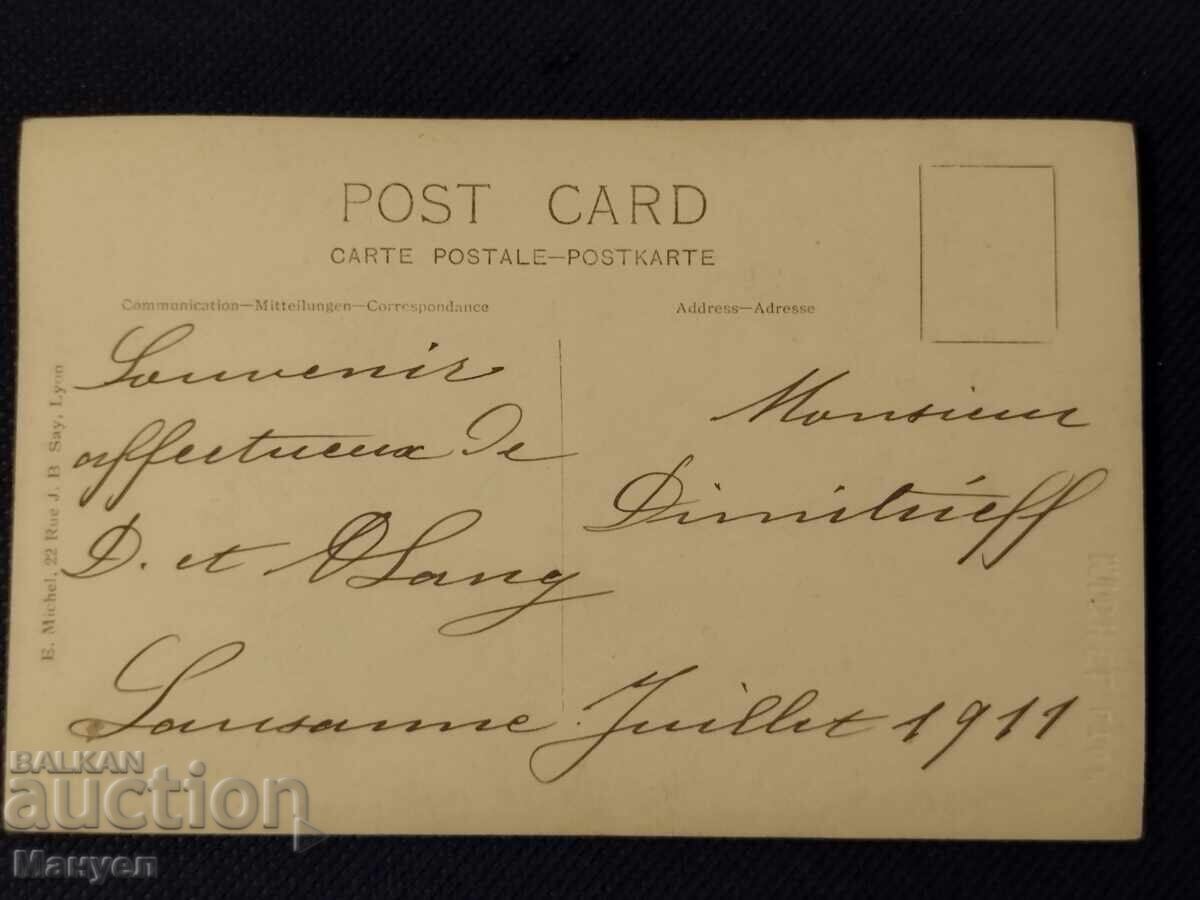 POST CARD
CARTE POSTALE—POSTKARTE
Communication—Mitteilungen—Correspondance
Address—Adresse
Souvenir
affectueux de
D. et Lang
Monsieur
Dimitrieff
Lausanne Juillet 1911
E. Michel, 22 Rue J. B Say, Lyon
BALKAN
auction
Мануел